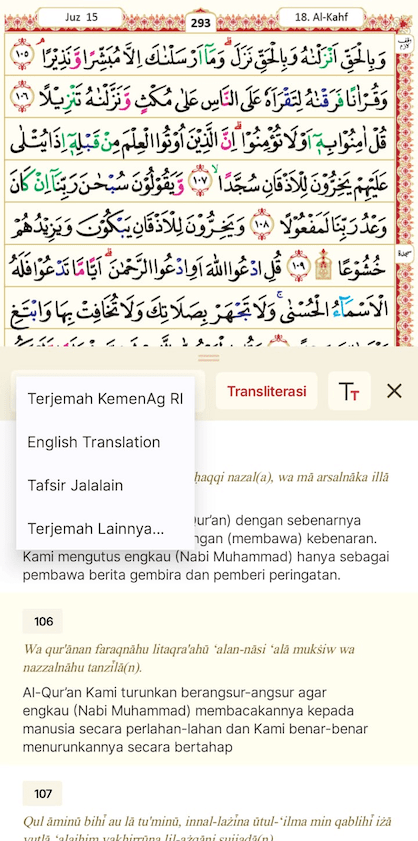 Juz 15
293
18. Al-Kahf
وَبِالْحَقِّ اَنْزَلْنٰهُ وَبِالْحَقِّ نَزَلَ ۗ وَمَآ اَرْسَلْنٰكَ اِلَّا مُبَشِّرًا وَّنَذِيْرًاۘ ١٠٥
وَقُرْاٰنًا فَرَقْنٰهُ لِتَقْرَاَهٗ عَلَى النَّاسِ عَلٰى مُكْثٍ وَّنَزَّلْنٰهُ تَنْزِيْلًا ١٠٦
قُلْ اٰمِنُوْا بِهٖٓ اَوْ لَا تُؤْمِنُوْاۗ اِنَّ الَّذِيْنَ اُوْتُوا الْعِلْمَ مِنْ قَبْلِهٖٓ اِذَا يُتْلٰى
عَلَيْهِمْ يَخِرُّوْنَ لِلْاَذْقَانِ سُجَّدًاۙ ١٠٧ وَّيَقُوْلُوْنَ سُبْحٰنَ رَبِّنَآ اِنْ كَانَ
وَعْدُ رَبِّنَا لَمَفْعُوْلًا ١٠٨ وَيَخِرُّوْنَ لِلْاَذْقَانِ يَبْكُوْنَ وَيَزِيْدُهُمْ
خُشُوْعًا ١٠٩ قُلِ ادْعُوا اللّٰهَ اَوِ ادْعُوا الرَّحْمٰنَۗ اَيًّا مَّا تَدْعُوْا فَلَهُ
سجدة
الْاَسْمَاۤءُ الْحُسْنٰىۚ وَلَا تَجْهَرْ بِصَلَاتِكَ وَلَا تُخَافِتْ بِهَا وَابْتَغِ
Terjemah KemenAg RI
English Translation
Tafsir Jalalain
Terjemah Lainnya...
Transliterasi
TT
ḥaqqi nazal(a), wa mā arsalnāka illā
ur'an) dengan sebenarnya
ngan (membawa) kebenaran.
Kami mengutus engkau (Nabi Muhammad) hanya sebagai
pembawa berita gembira dan pemberi peringatan.
106
Wa qur'ānan faraqnāhu litaqra'ahū ‘alan-nāsi ‘alā mukṡiw wa
nazzalnāhu tanzīlā(n).
Al-Qur’an Kami turunkan berangsur-angsur agar
engkau (Nabi Muhammad) membacakannya kepada
manusia secara perlahan-lahan dan Kami benar-benar
menurunkannya secara bertahap
107
Qul āminū bihī au lā tu'minū, innal-lażīna ūtul-‘ilma min qablihī iżā
yutlā ‘alaihim yakhirrūna lil-ażqāni sujjadā(n).